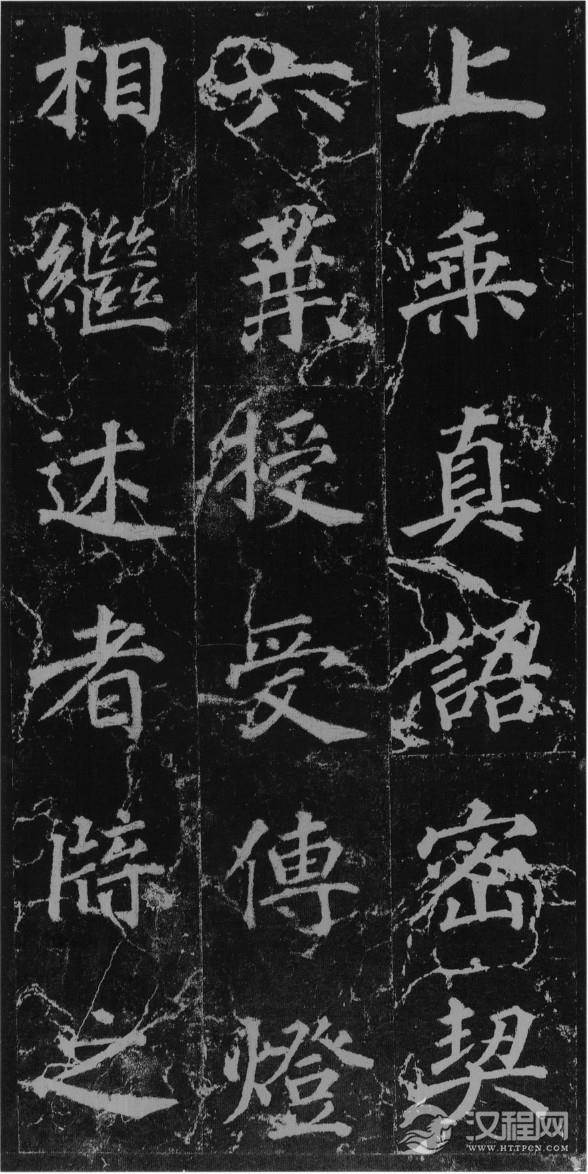 上乘真語密契
六葉授受傳燈
相繼述者之
汉程网
WWW.HTTPCN.COM